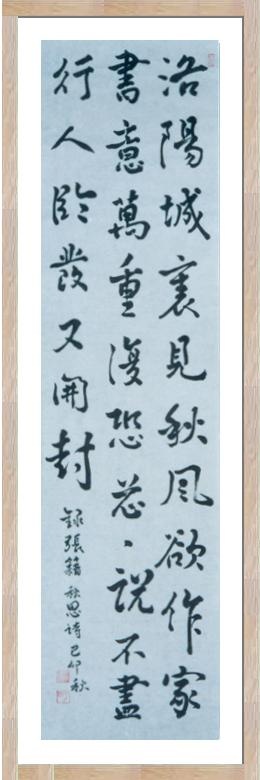 洛陽城裏見秋風欲作家
書意萬重復恐怱々說不盡
行人臨發又開封
錄張籍秋思詩己卯秋